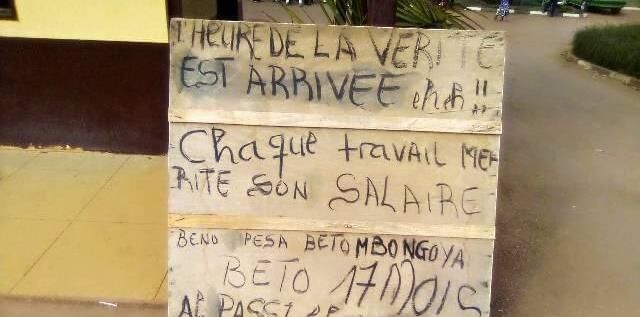 L'HEURE DE LA VERITE
EST ARRIVEE eheh!!
Chaque travail ME-
RITE SON SALAIRE
BENO PESA BETO MBONGO YA
BETO 17 MOIS